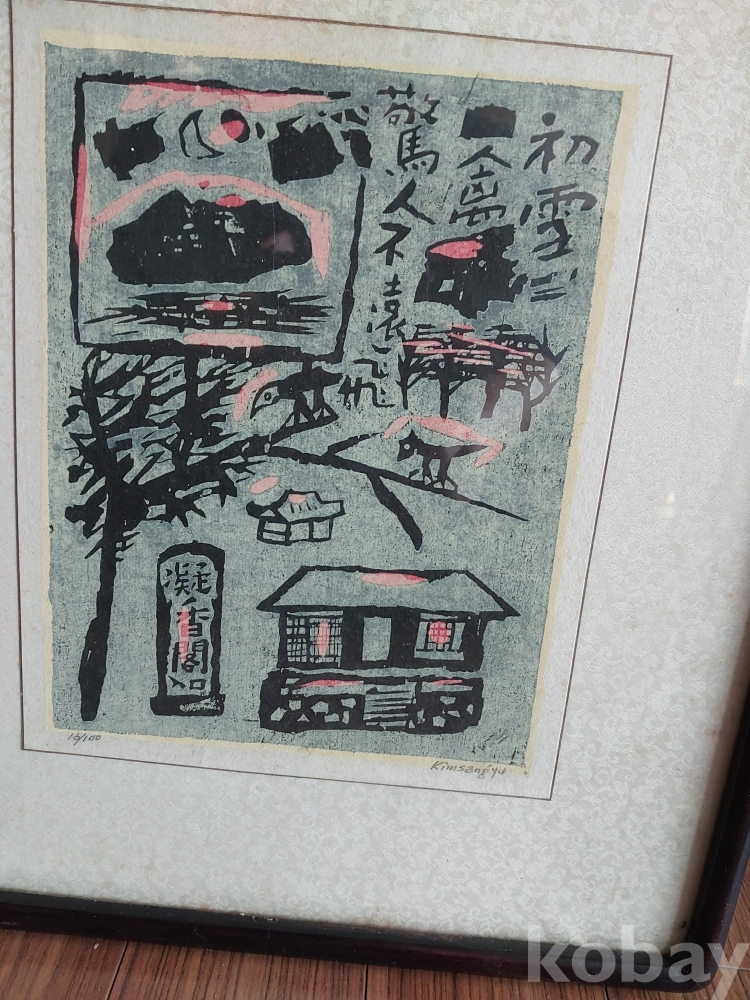 初雪
人
驚人不遠飛
凝香閣
16/100
Kimsangyu
kobay